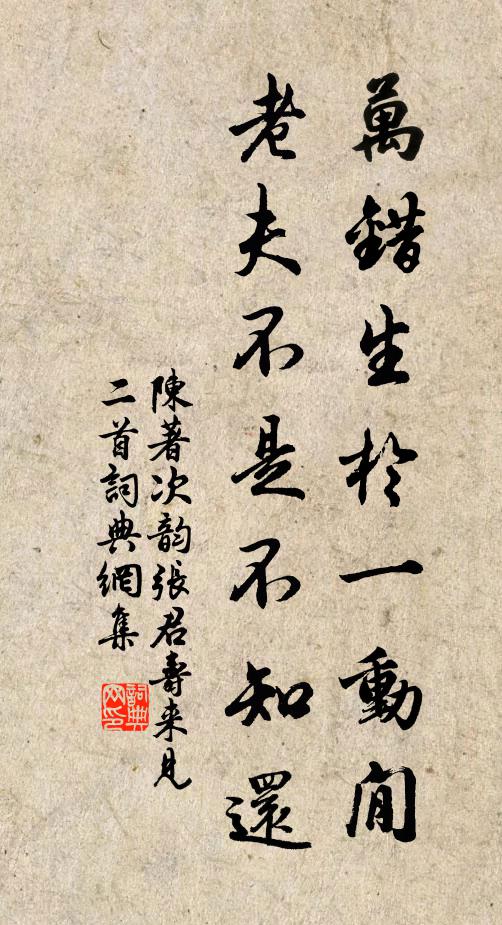 萬錯生於一動間
老夫不是不知還
陳著次韵張君壽来見
二首詞典網集
詞典网印